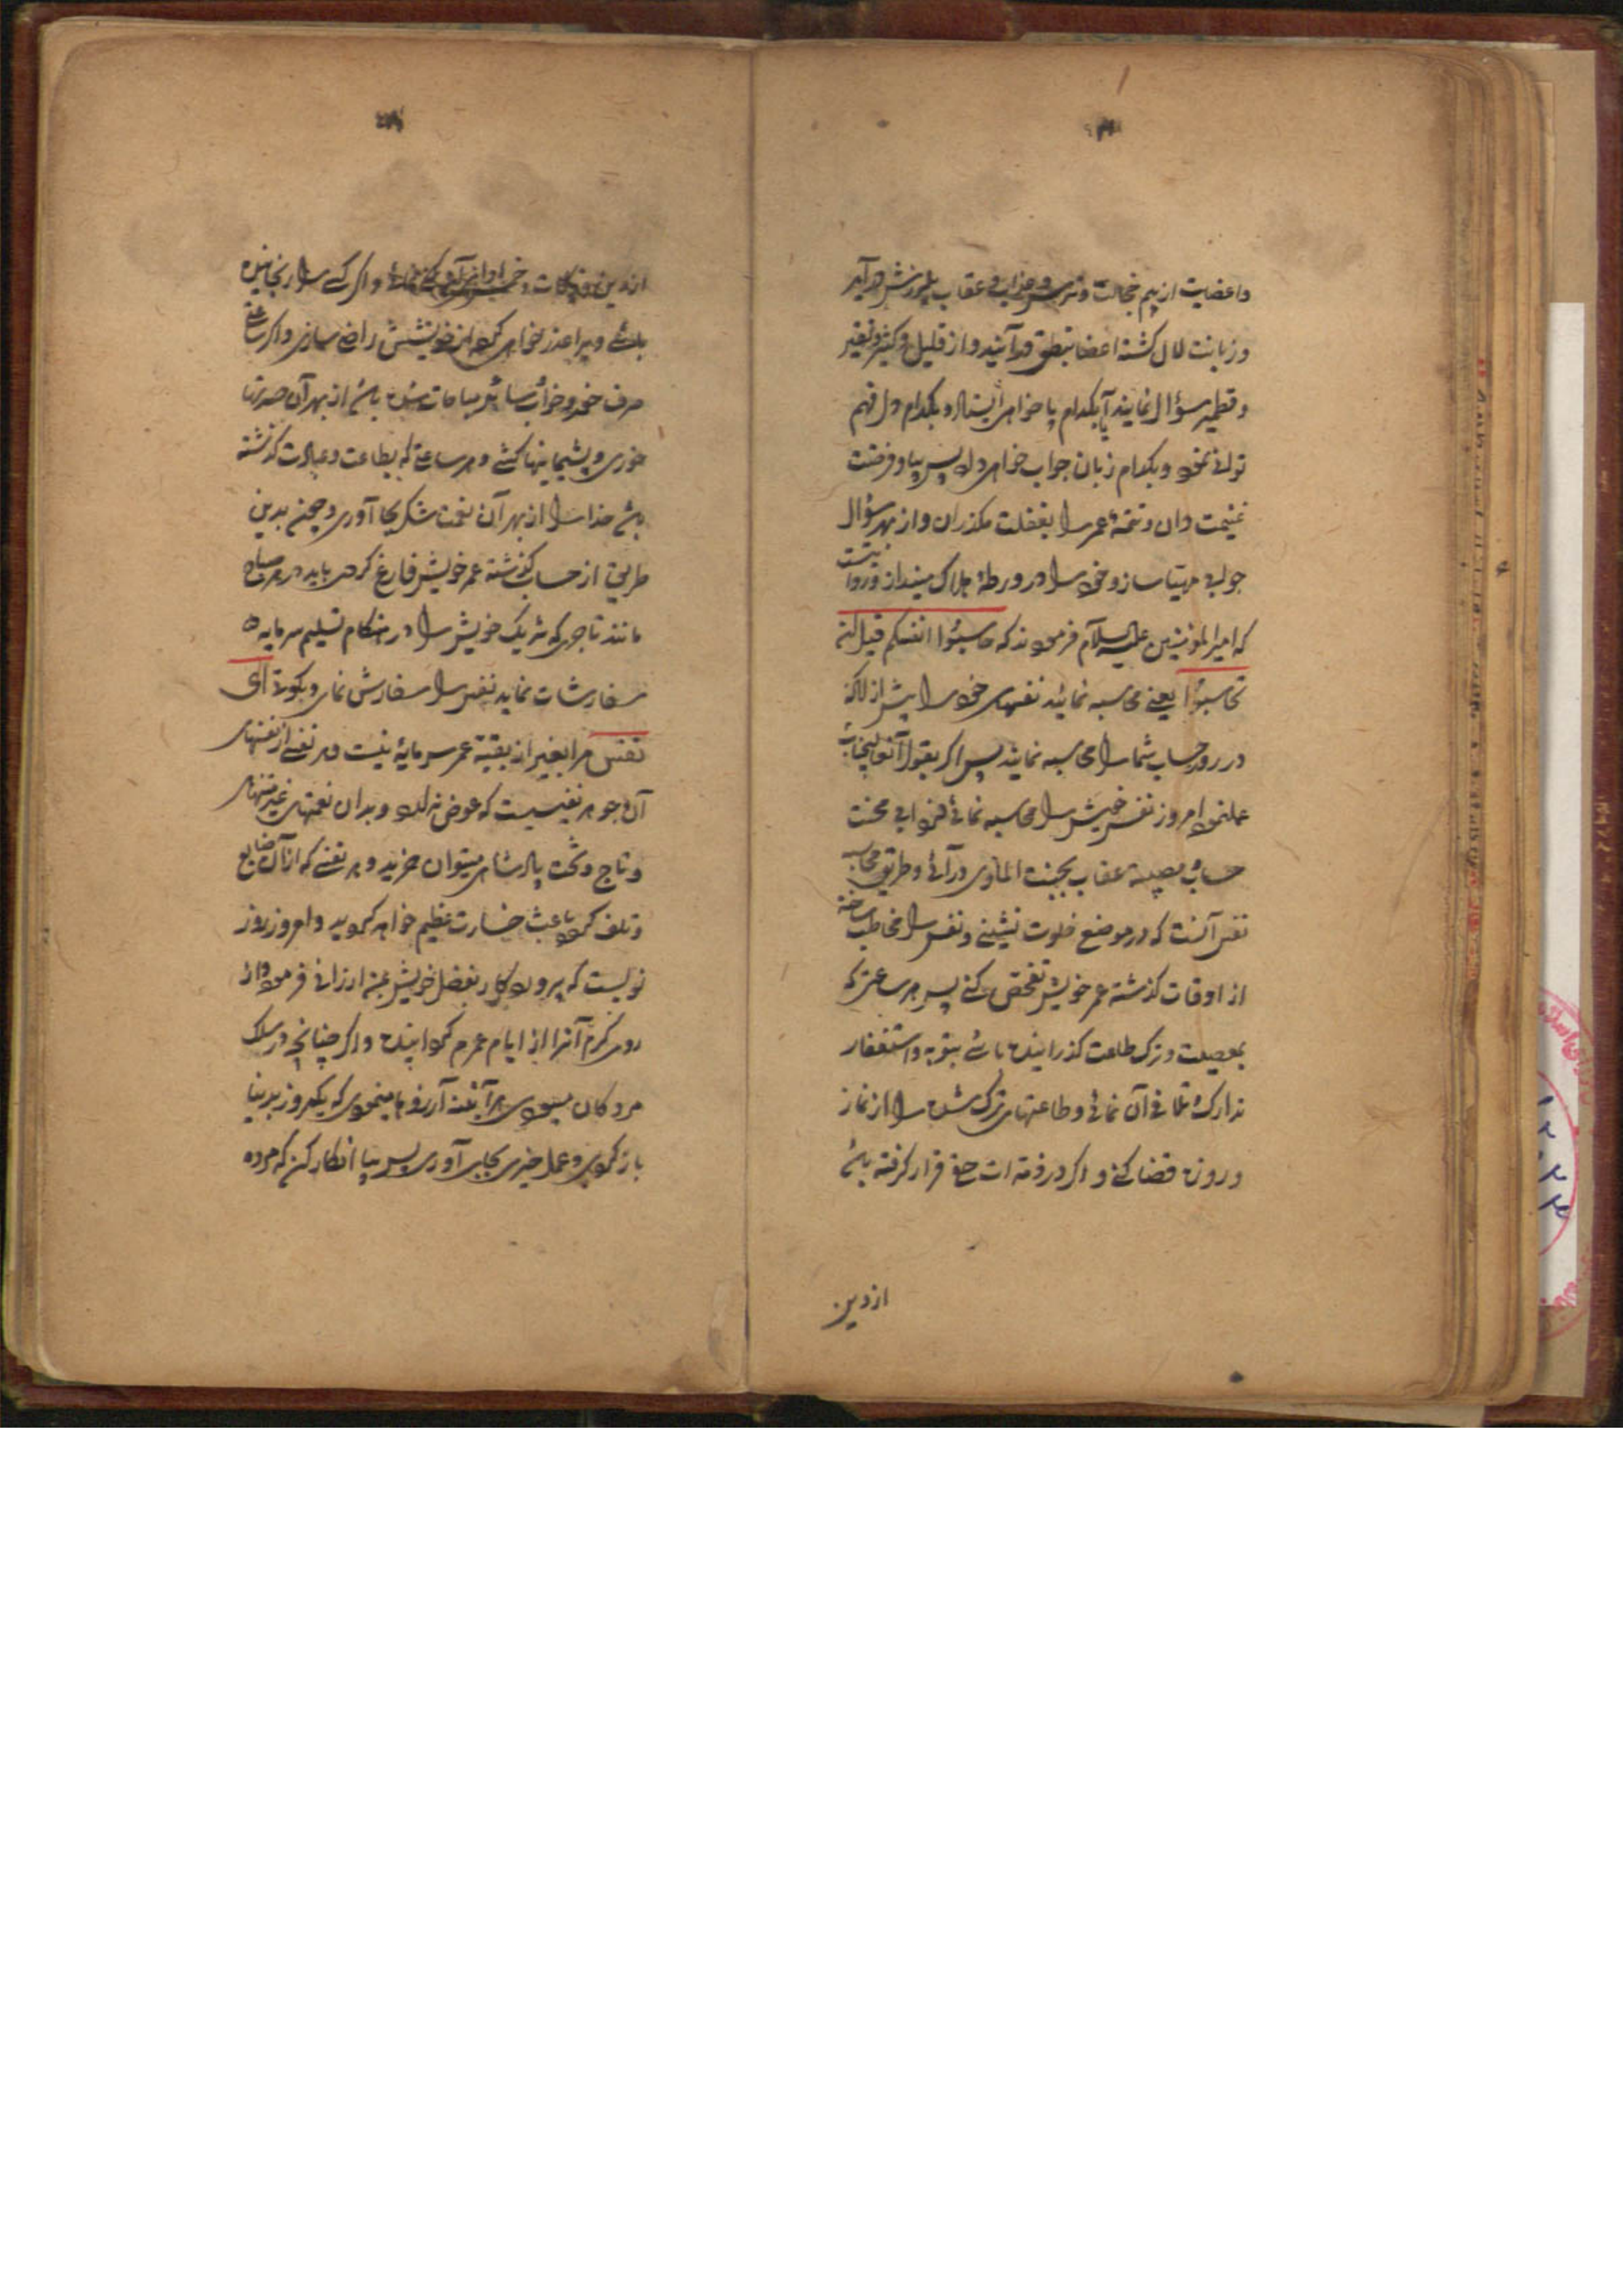 واعضایت از بیم خجالت و ترس و عذاب و عقاب بلرزش درآید
و زبانت لال کشته اعضا بنطق درآیند و از قلیل و کثیر و نقیر
و قطمیر سؤال نمایند آیا بکدام پا خواهی ایستاد و بکدام دل فهم
توانی نمود و بکدام زبان جواب خواهی داد پس بیا و فرصت
غنیمت دان و تتمه عمر را بغفلت مکذران و از بهر سؤال
جوابی مهیا ساز و خود را در ورطه هلاک مینداز
که امیر المؤمنین علیه السلام فرمودند که حاسبوا انفسکم قبل ان
تحاسبوا یعنی محاسبه نمائید نفسهای خود را پیش از آنکه
در روز حساب شما را محاسبه نمایند پس اکر بقول
عمل نمود امروز نفس خویش را محاسبه نمائی فردا بی محنت
حساب و عقاب بجنت الماوی درآئی و طریق محاسبه
نفس آنست که در موضع خلوت نشینی و نفس را مخاطب ساخته
از اوقات کذشته عمر خویش تفحص کنی پس هر ساعتی که
بمعصیت و ترک طاعت کذرانیده باشی بتوبه و استغفار
تدارک و تلافی آن نمائی و طاعتهای ترک شده را از نماز
و روزه قضا کنی و اکر در ذمه ات حق قرار کرفته باشد
از دین
از دین و زکات و واکر کسی را رنجانیده
باشی ویرا عذر خواهی کرده از خویشتنش راضی سازی و اکر ساعتی
صرف خورد و خواب و سائر مباحات شده باشد از بهر آن حسرتها
خوری و پشیمانیها کشی و هر ساعتی که بطاعت و عبادت کذشته
باشد خدا را از بهر آن نعمت شکر بجا آوری و چون بدین
طریق از حساب کذشته عمر خویش فارغ کردی باید در هر صباح
مانند تاجری که شریک خویش را در هنکام تسلیم سرمایه
سفارشات نماید نفس را سفارش نمای و بکوئی ای
نفس مرا بغیر از بقیه عمر سرمایه نیست و هر نفسی از نفسهای
آن جوهر نفیسیست که عوض ندارد و بدان نعمتهای غیر متنهای
و تاج و تخت پادشاهی میتوان خرید و هر نفسی که از آن ضایع
و تلف کردد باعث خسارت عظیم خواهد کردید و امروز روز
نویست که پروردکار بفضل خویش بمن ارزانی فرموده و از
روی کرم آنرا از ایام عمرم کردانیده و اکر چنانچه در سلک
مردکان میبودی هر آینه آرزوها مینمودی که یکروز بدنیا
باز کردی و عمل خیری بجای آوری پس بیا انکار کن که مرده